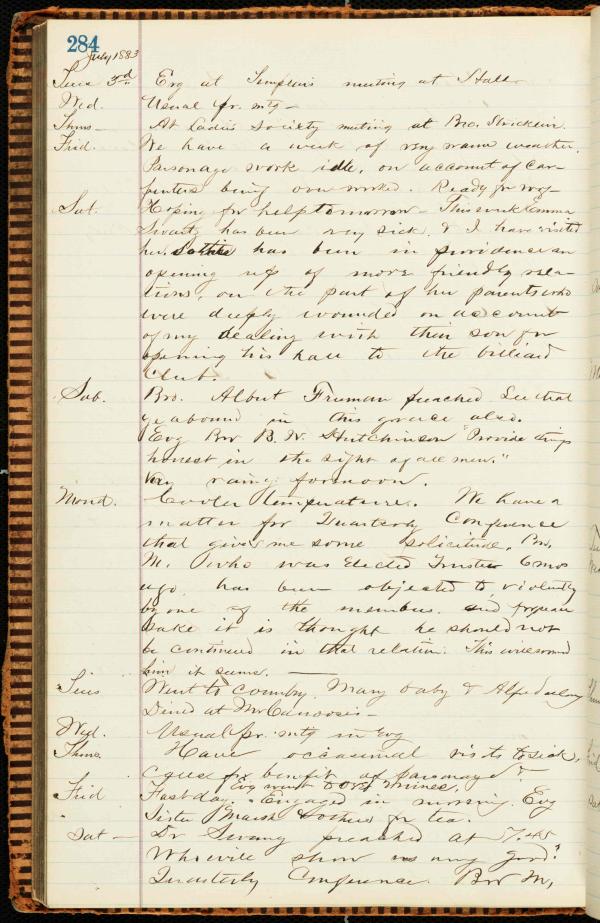 284
July 1883
Tues 3rd Evg at Templars meeting at Hall
Wed. Usual pr. mtg —
Thurs — At Ladies Society meeting at Bro.
Frid We have a week of very warm weather.
Parsonage work idle, on account of car-
penters being over worked. Ready for roof
Sat. Hoping for help tomorrow — This week Emma
Swartz has been very sick, & I have visited
her, & this has been in providence an
opening up of more friendly rela-
tions, on the part of her parents who
were deeply wounded on account
of my dealing with their son for
opening his hall to the billiard
Club.
Sab. Bro. Albert Truman preached. See that
ye abound in this grace also.
Evg Bro B. N. Hutchinson "Provide things
honest in the sight of all men."
Very rainy forenoon.
Mond. Cooler temperature. We have a
matter for Quarterly Conference
that gives me some solicitude. Bro.
M. who was elected Trustee 6 mos
ago, has been objected to violently
by one of the members. And for peace
sake it is thought he should not
be continued in that relation. This will wound
him it seems. —
Tues Went to Country, Mary baby & Alfred along
Dined at Mr
Wed. Usual pr. mtg in Evg
Thurs. Have occasional visits to sick,
for benefit of parsonage
Evg went to
Frid Fast day. Engaged in nursing. Evg
Sister Marsh & others for tea.
Sat — Dr Swany preached at 7.45
Who will show us any good?
Quarterly Conference. Bro M,